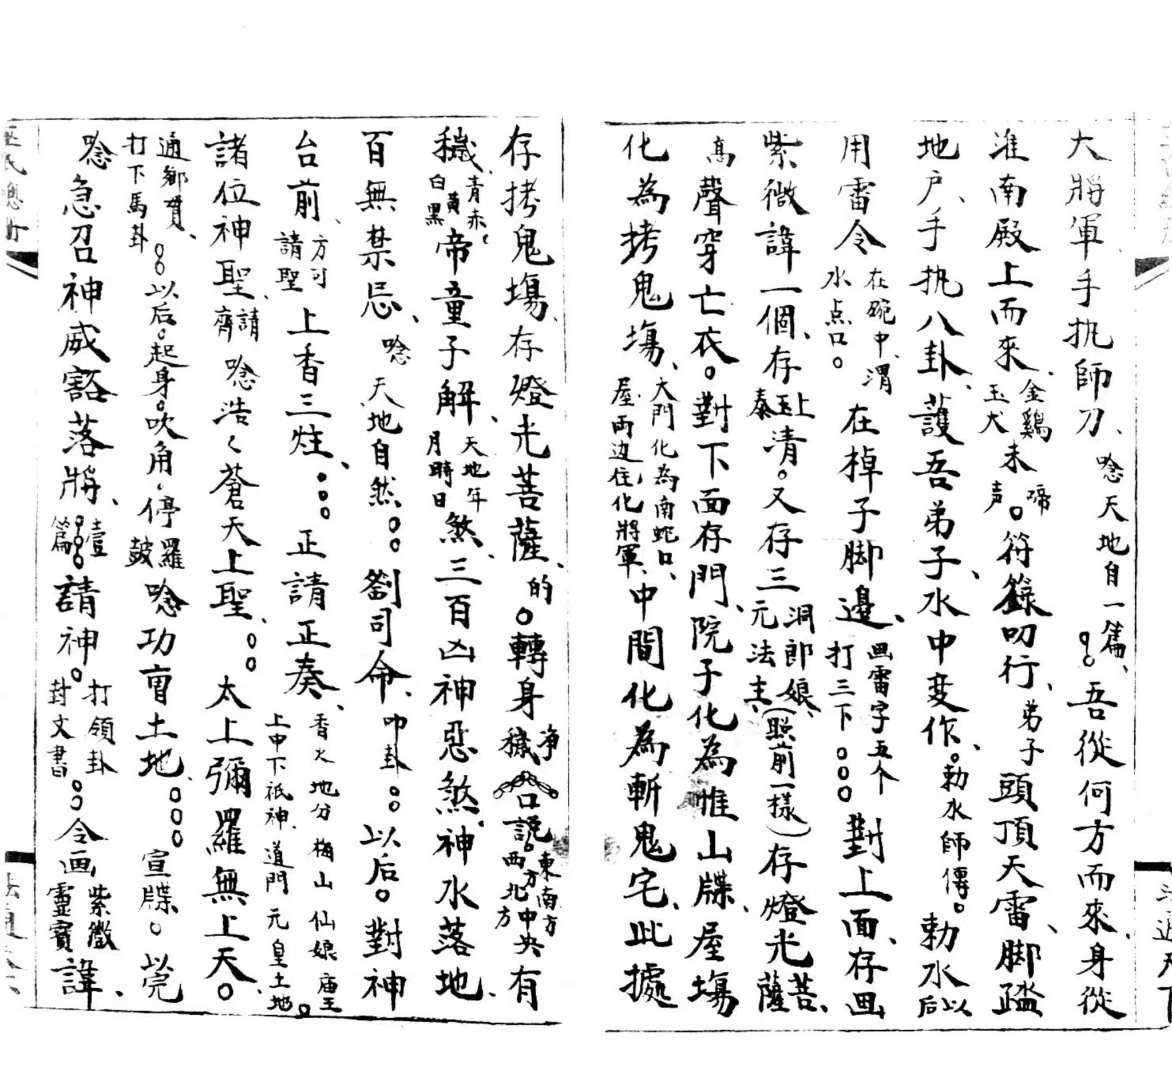 大將軍、手执師刀、唸天地自一篇、。。吾從何方而來、身從
淮南殿上而來、金鷄玉犬未啼声。符籙叨行、弟子頭頂天雷、脚踏
地户、手执八卦、護吾弟子、水中变作、。勅水師傳。勅水以后
用雷令在碗中、渭水点口。在棹子脚邊、画雷字五个打三下。。。對上面、存画
紫微諱一個、存玉清上泰。又存三元法主、洞郎娘、(照前一樣)存燈光菩薩、
高聲穿亡衣。對下面存門、院子化為惟山牒、屋塲
化為拷鬼塲、大門化為南蛇口、屋両边住化將軍、中間化為斬鬼宅、此處
存拷鬼塲、存燈光菩薩、的。轉身、净穢口説。東南方西北方中央有
穢、青赤黄白黑帝童子解、天地年月時日煞、三百凶神惡煞、神水落地、
百無禁忌、唸天地自然。。。劉司命、叩卦。。以后。對神
台前、方可請聖上香三炷、。。。正請正奏、香火地分梅山仙娘庙王上中下祇神、道門元皇土地。
諸位神聖、請齊唸浩々蒼天上聖、。。。太上彌羅無上天。
通鄉貫、打下馬卦。。。以后。起身。吹角、停羅皷唸功曺土地、。。。。宣牒。以完
唸急召神威豁落將、壹篇。。。。請神。打領卦封文書。。。令画紫微靈寳諱、